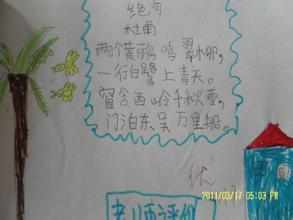 绝句
杜甫
两个黄鹂鸣翠柳,
一行白鹭上青天。
窗含西岭千秋雪,
门泊东吴万里船。
老师评价
2011/03/17 05:03 PM